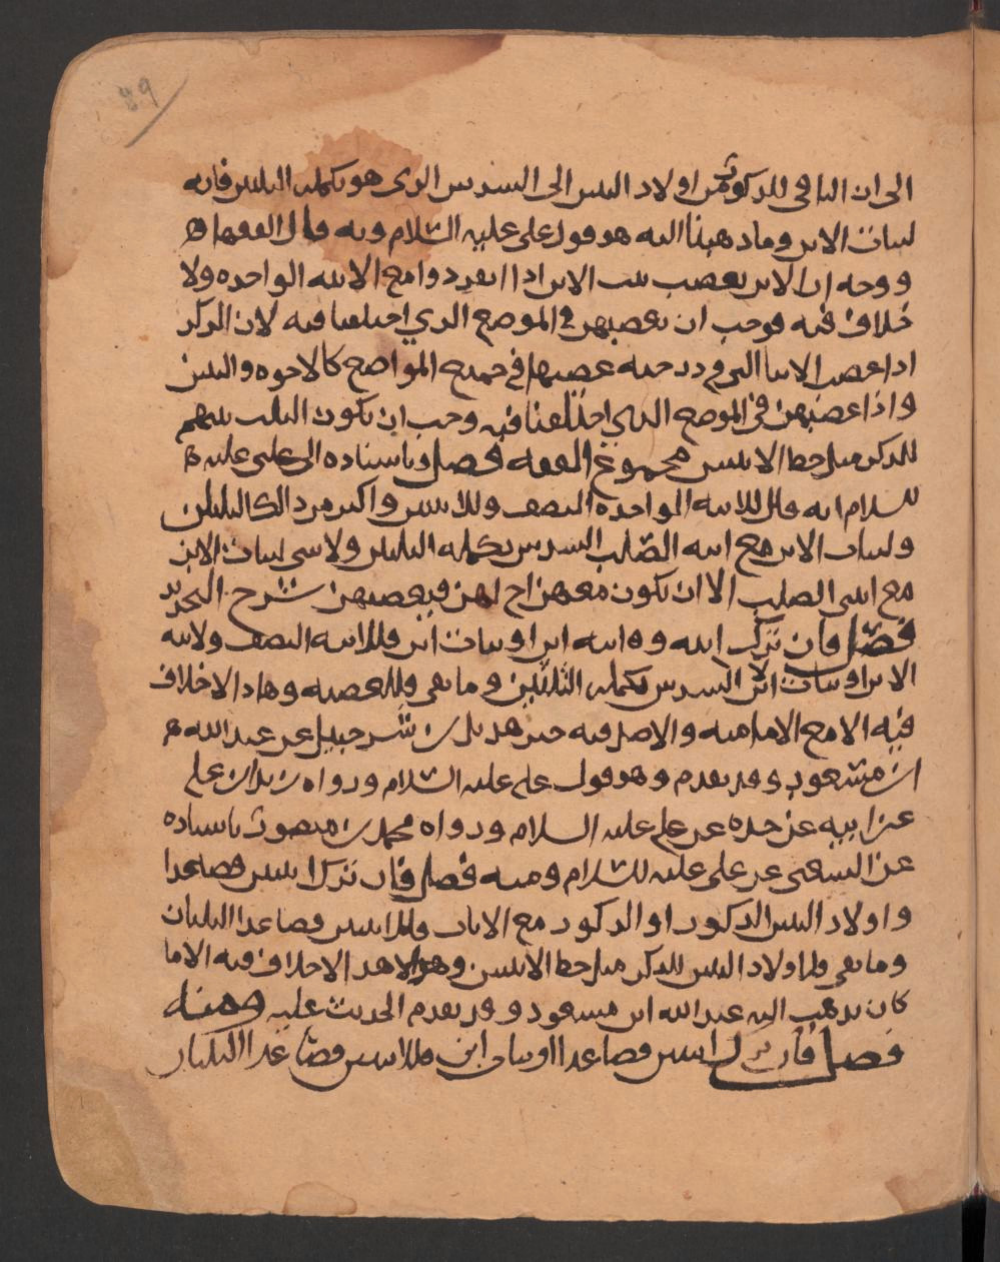 ٨٩
الى ان الباقي للذكور من اولاد البنين الى السدس الذي هو تكملة الثلثين فانه
لبنات الابن وما ذهبنا اليه هو قول علي عليه السلام وبه قال الفقها
ووجه ان الابن يعصب بنت الابن اذا انفردوا مع الابنة الواحدة ولا
خلاف فيه فوجب ان يعصبهن في الموضع الذي اختلفنا فيه لان الذكر
اذا عصب الانثى التي في درجته عصبها في جميع المواضع كالاخوة والبنين
واذا عصبهن في الموضع الذي اختلفنا فيه وجب ان يكون الثلث بينهم
للذكر مثل حظ الانثيين مجموع الفقه فصل وباسناده الى علي عليه
السلام انه قال للابنة الواحدة النصف وللابنتين واكثر من ذالك الثلثان
ولبنات الابن مع ابنة الصلب السدس تكملة الثلثين ولا شي لبنات الابن
مع ابنتي الصلب الا ان يكون معهن اخ لهن فيعصبهن شرح التحرير
فصل فان ترك ابنة وابنة ابن او بنات ابن فللابنة النصف ولابنة
الابن او بنات الابن السدس تكملة الثلثين وما بقي فللعصبة وهذا لا خلاف
فيه الا مع الامامية والاصل فيه خبر هذيل بن شرحبيل عن عبد الله
ابن مسعود وقد تقدم وهو قول علي عليه السلام ورواه زيد بن علي
عن ابيه عن جده عن علي عليه السلام ورواه محمد بن منصور باسناده
عن الشعبي عن علي عليه السلام ومنه فصل فان ترك ابنتين فصاعدا
واولاد البنين الذكور او الذكور مع الاناث فللابنتين فصاعدا الثلثان
وما بقي فلاولاد البنين للذكر مثل حظ الانثيين وهذا لا خلاف فيه الا ما
كان يذهب اليه عبد الله ابن مسعود وقد تقدم الحديث عليه ومنه
فصل فان ترك ابنتين فصاعدا او بنات ابن فللابنتين فصاعدا الثلثان